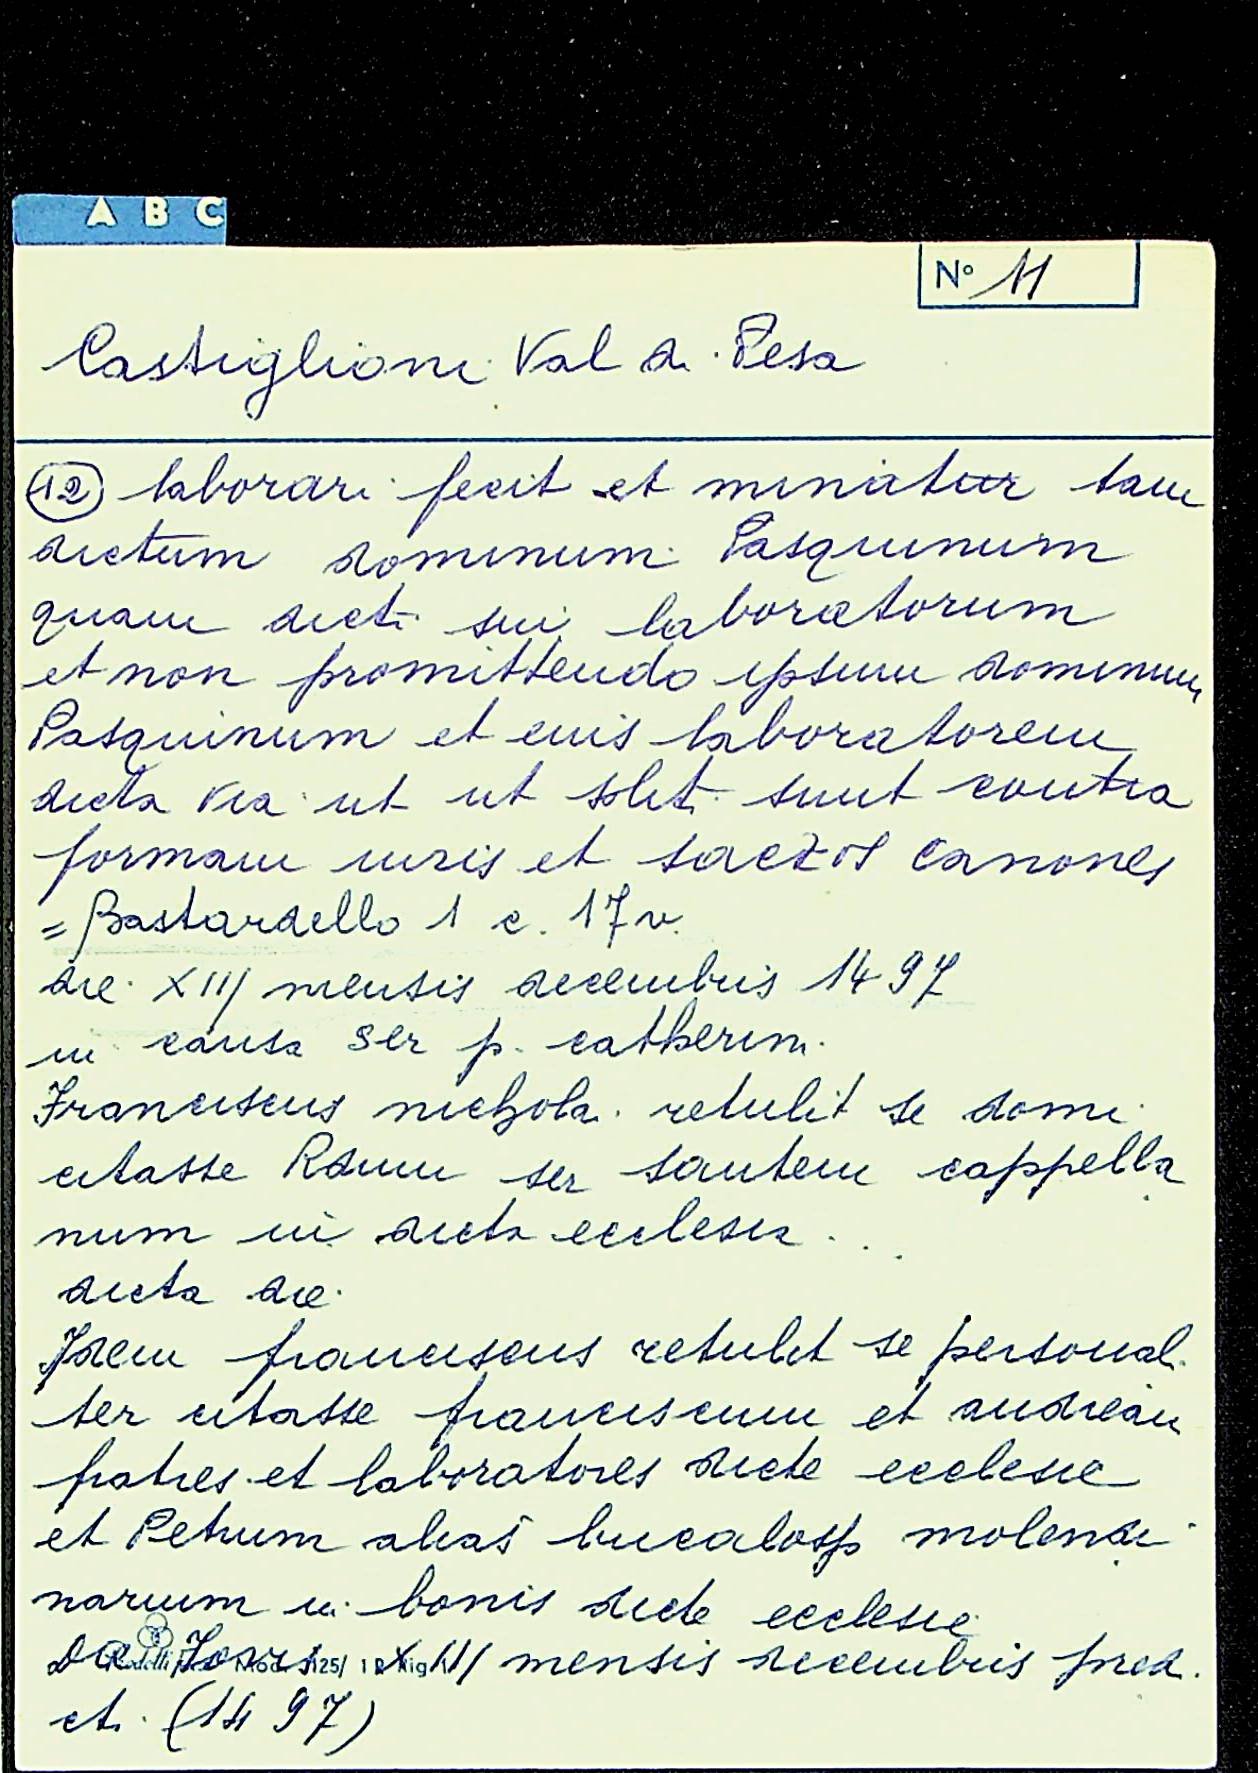 A B C
N° 11
Castiglioni Val di Pesa
(12) laborari fecit et miniatur tam
dictum dominum Pasquinum
quam dicti sui laboratorum
et non promittendo ipsum dominum
Pasquinum et euis laboratorem
dicta via ut ut soliti sunt contra
formam iuris et sacros canones
= Bastardello 1 c. 17 v.
die XIII mensis decembris 1497
in causa ser p. catherini
Franciscus nichola retulit se domi
citasse ser santem cappella
num in dicta ecclesia ...
dicta die
Idem franciscus retulit se personali
ter citasse franciscum et andream
fratres et laboratores dicte ecclesie
et Petrum alias molendi
narium in bonis dicte ecclesie
Die Jovis XIIII mensis decembris pred.
cti (1497)